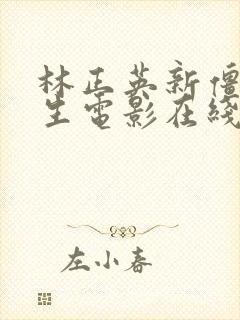 林正英新僵
生电影在线
左小春